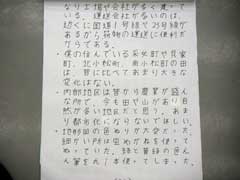 なり工場や会社が多く建って
いる。運送会社が多いのは、
近くに国道1号線や23号線が
あるから荷物の運送に便利だ
からである。
・僕の住んでいる采女町や貝家
町、北小松町、南小松町の田
は、昔に比べてあまり大きな
変化はない。
・内部地区は昔から農業が盛ん
な所で、今も田や山があり自
然が多い地区だと思う。あま
り都市化にならないでほしい。
・地形図の色ぬりが大変だった。
細かい所は虫めがねを使って
ぬっていた。緑と黄緑の色え
ん筆を1本使ってしまった。